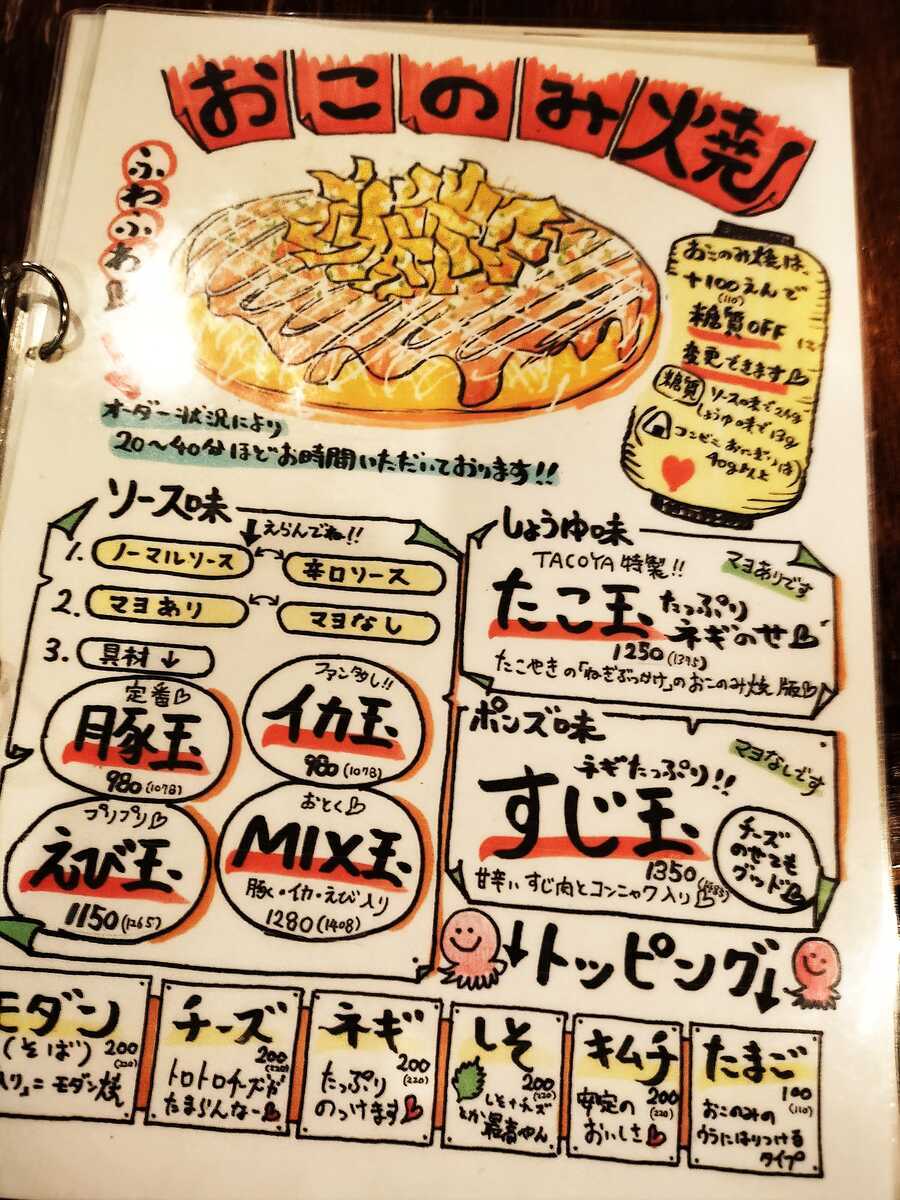 おこのみ焼
ふわふわ
おこのみ焼は、
+100えんで
(110)
糖質OFFに
変更できます
糖質 ソース味で24g
しょうゆ味で13g
コンビニおにぎりは
40g以上
オーダー状況により
20〜40分ほどお時間いただいております!!
ソース味
えらんでね!!
1. ノーマルソース 辛口ソース
2. マヨあり マヨなし
3. 具材↓
定番
豚玉
980(1078)
ファン多し!!
イカ玉
980(1078)
プリプリ
えび玉
1150(1265)
おとく
MIX玉
豚・イカ・えび入り
1280(1408)
しょうゆ味
TACOYA特製!!
マヨありです
たこ玉 たっぷり
ネギのせ
1250(1375)
たこやきの「ねぎぶっかけ」のおこのみ焼版
ポンズ味
マヨなしです
ネギたっぷり!!
すじ玉
1350
甘辛いすじ肉とコンニャク入り
チーズ
のせても
グッド
↓トッピング↓
モダン
(そば) 200
(220)
入り」=モダン焼
チーズ
200
(220)
トロトロチーズが
たまらんなー
ネギ
200
(220)
たっぷり
のっけます
しそ
200
(220)
しそ+チーズ
とか最高やん
キムチ
200
(220)
安定の
おいしさ
たまご
100
(110)
おこのみの
ウラにはりつける
タイプ